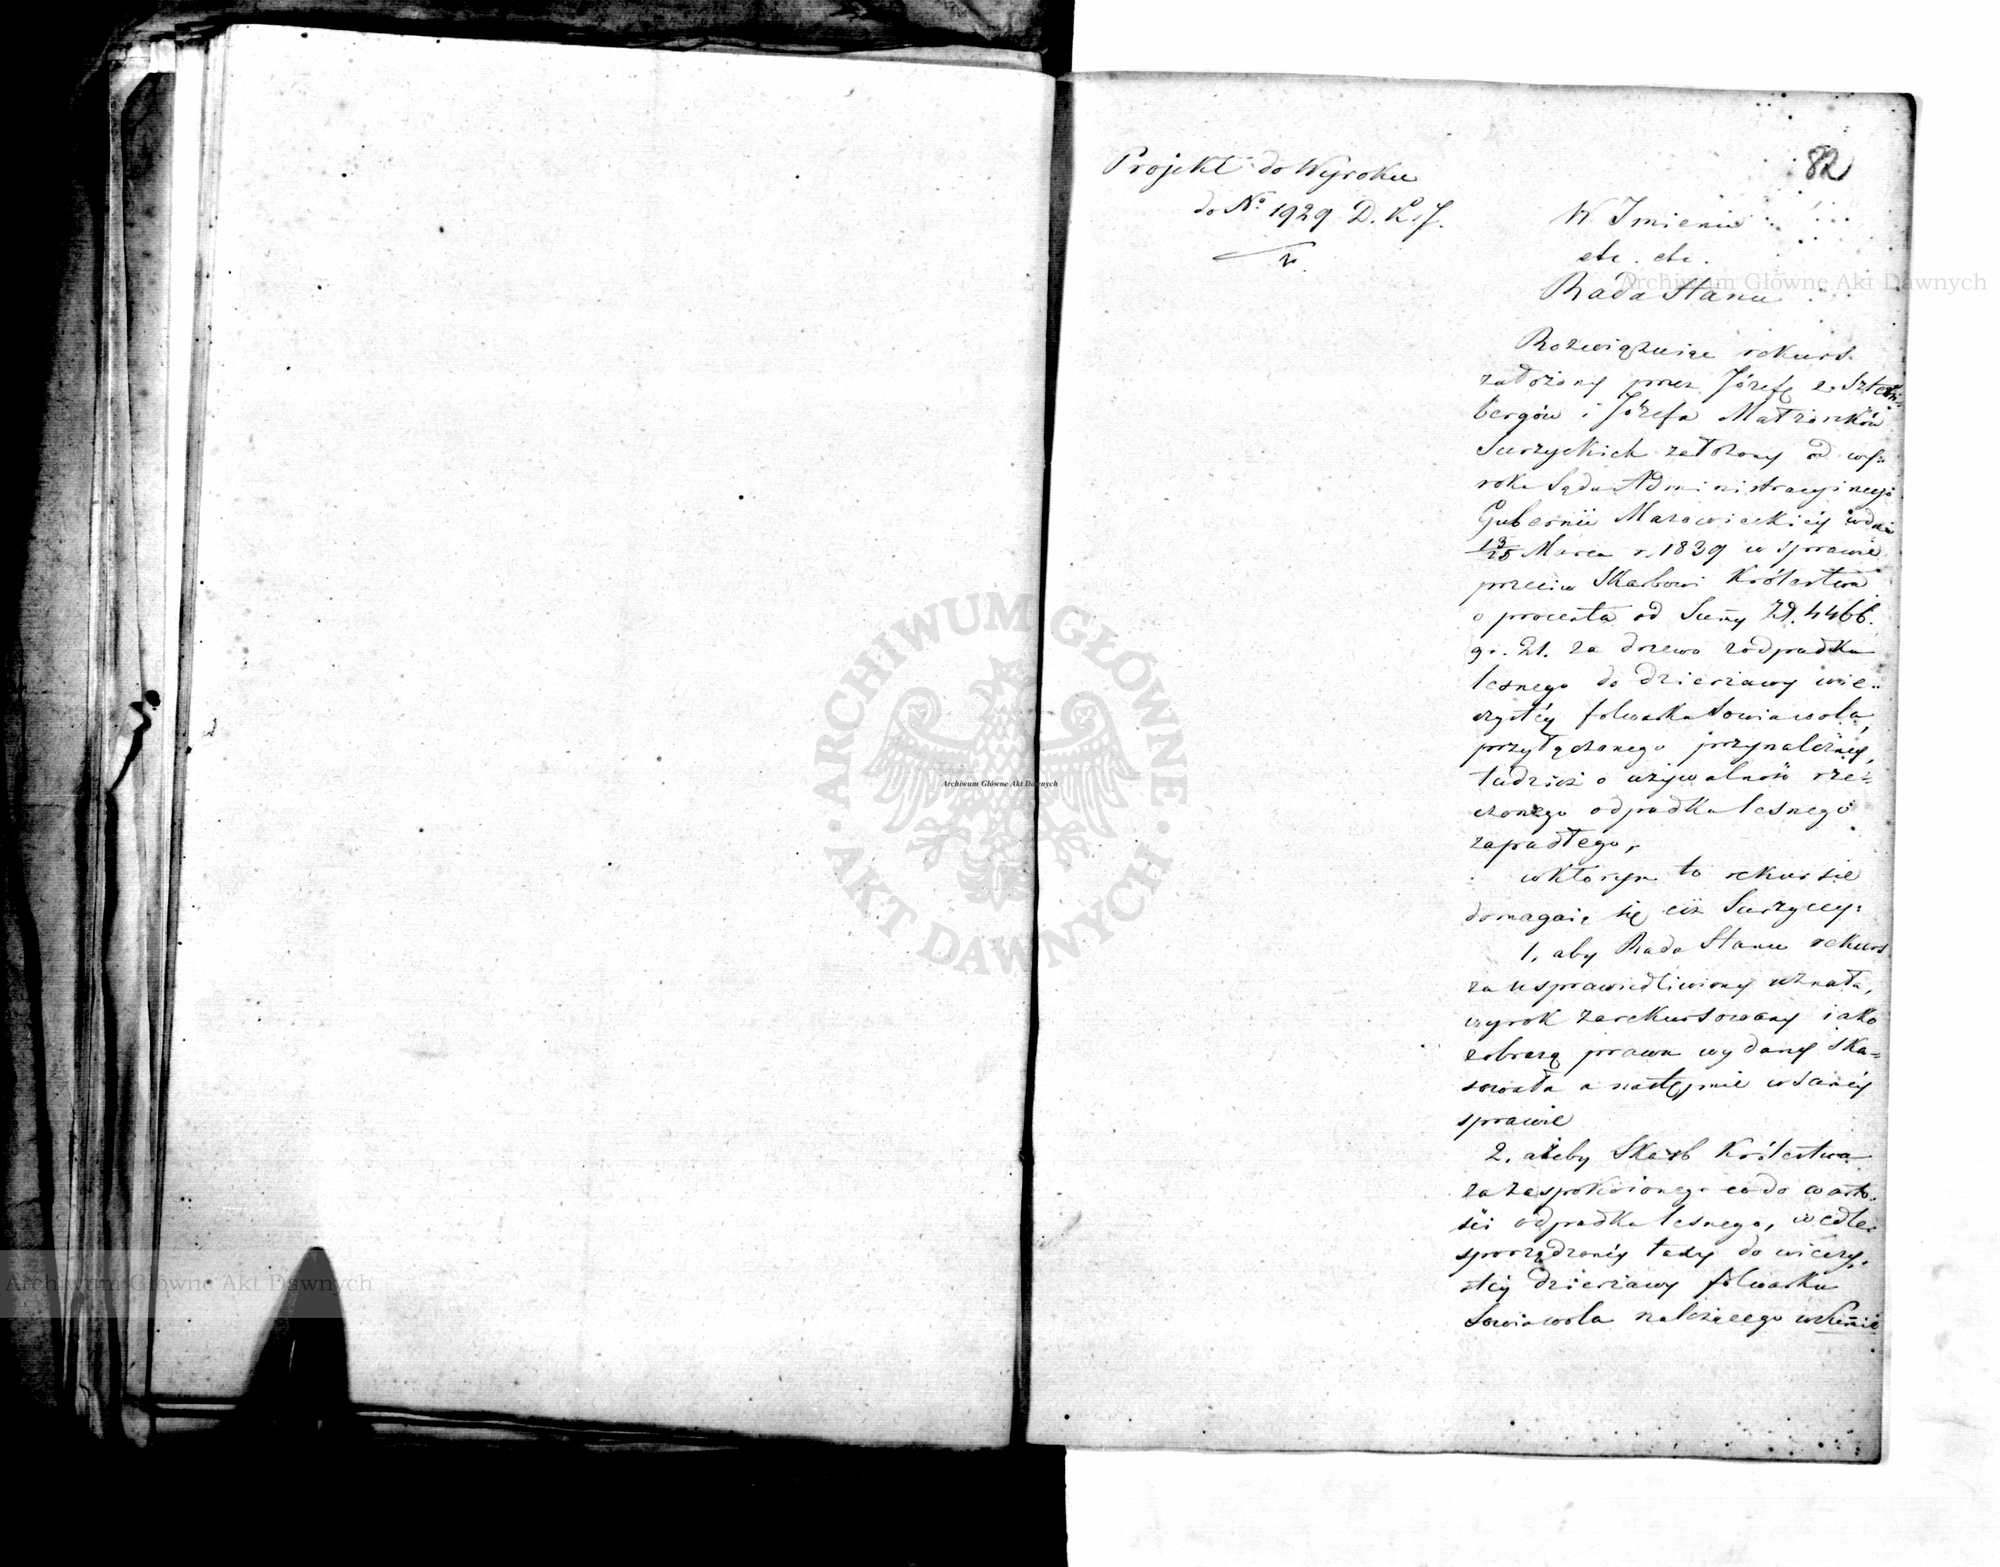 82
Projekt do Wyroku
do No 1929 D. K. S.
W Imieniu
etc. etc.
Rada Stanu
Rozwiązuiąc rekurs
założony przez Józefę z Sztern=
bergów i Józefa Małżonków
Surzyckich założony od wy=
roku Sądu Administracyinego
Gubernii Mazowieckiéy w dniu
13/25 Marca r. 1839 w sprawie
przeciw Skarbowi Królestwa
o procenta od Summy Zł. 4466.
gr. 21. za drzewo z odpadku
lesnego do dzierżawy wie=
czystéy folwarku Sowiawola,
przyłączonego przynależnéy,
tudzież o używalność rze=
czonego odpadku lesnego
zapadłego,
w którym to rekursie
domagaią się ciż Surzyccy:
1, aby Rada Stanu rekurs
za usprawiedliwiony uznała,
wyrok zarekursowany iako
z obrazą prawa wydany ska=
sowała a następnie w saméy
sprawie
2, ażeby Skarb Królestwa
za zaspokoionego co do warto=
ści odpadku lesnego, wedle
sporządzonéy taxy do wieczy=
stéy dzierżawy folwarku
Sowiawola należącego w Summie
Archiwum Główne Akt Dawnych
ARCHIWUM GŁÓWNE
AKT DAWNYCH
Archiwum Główne Akt Dawnych
Archiwum Główne Akt Dawnych